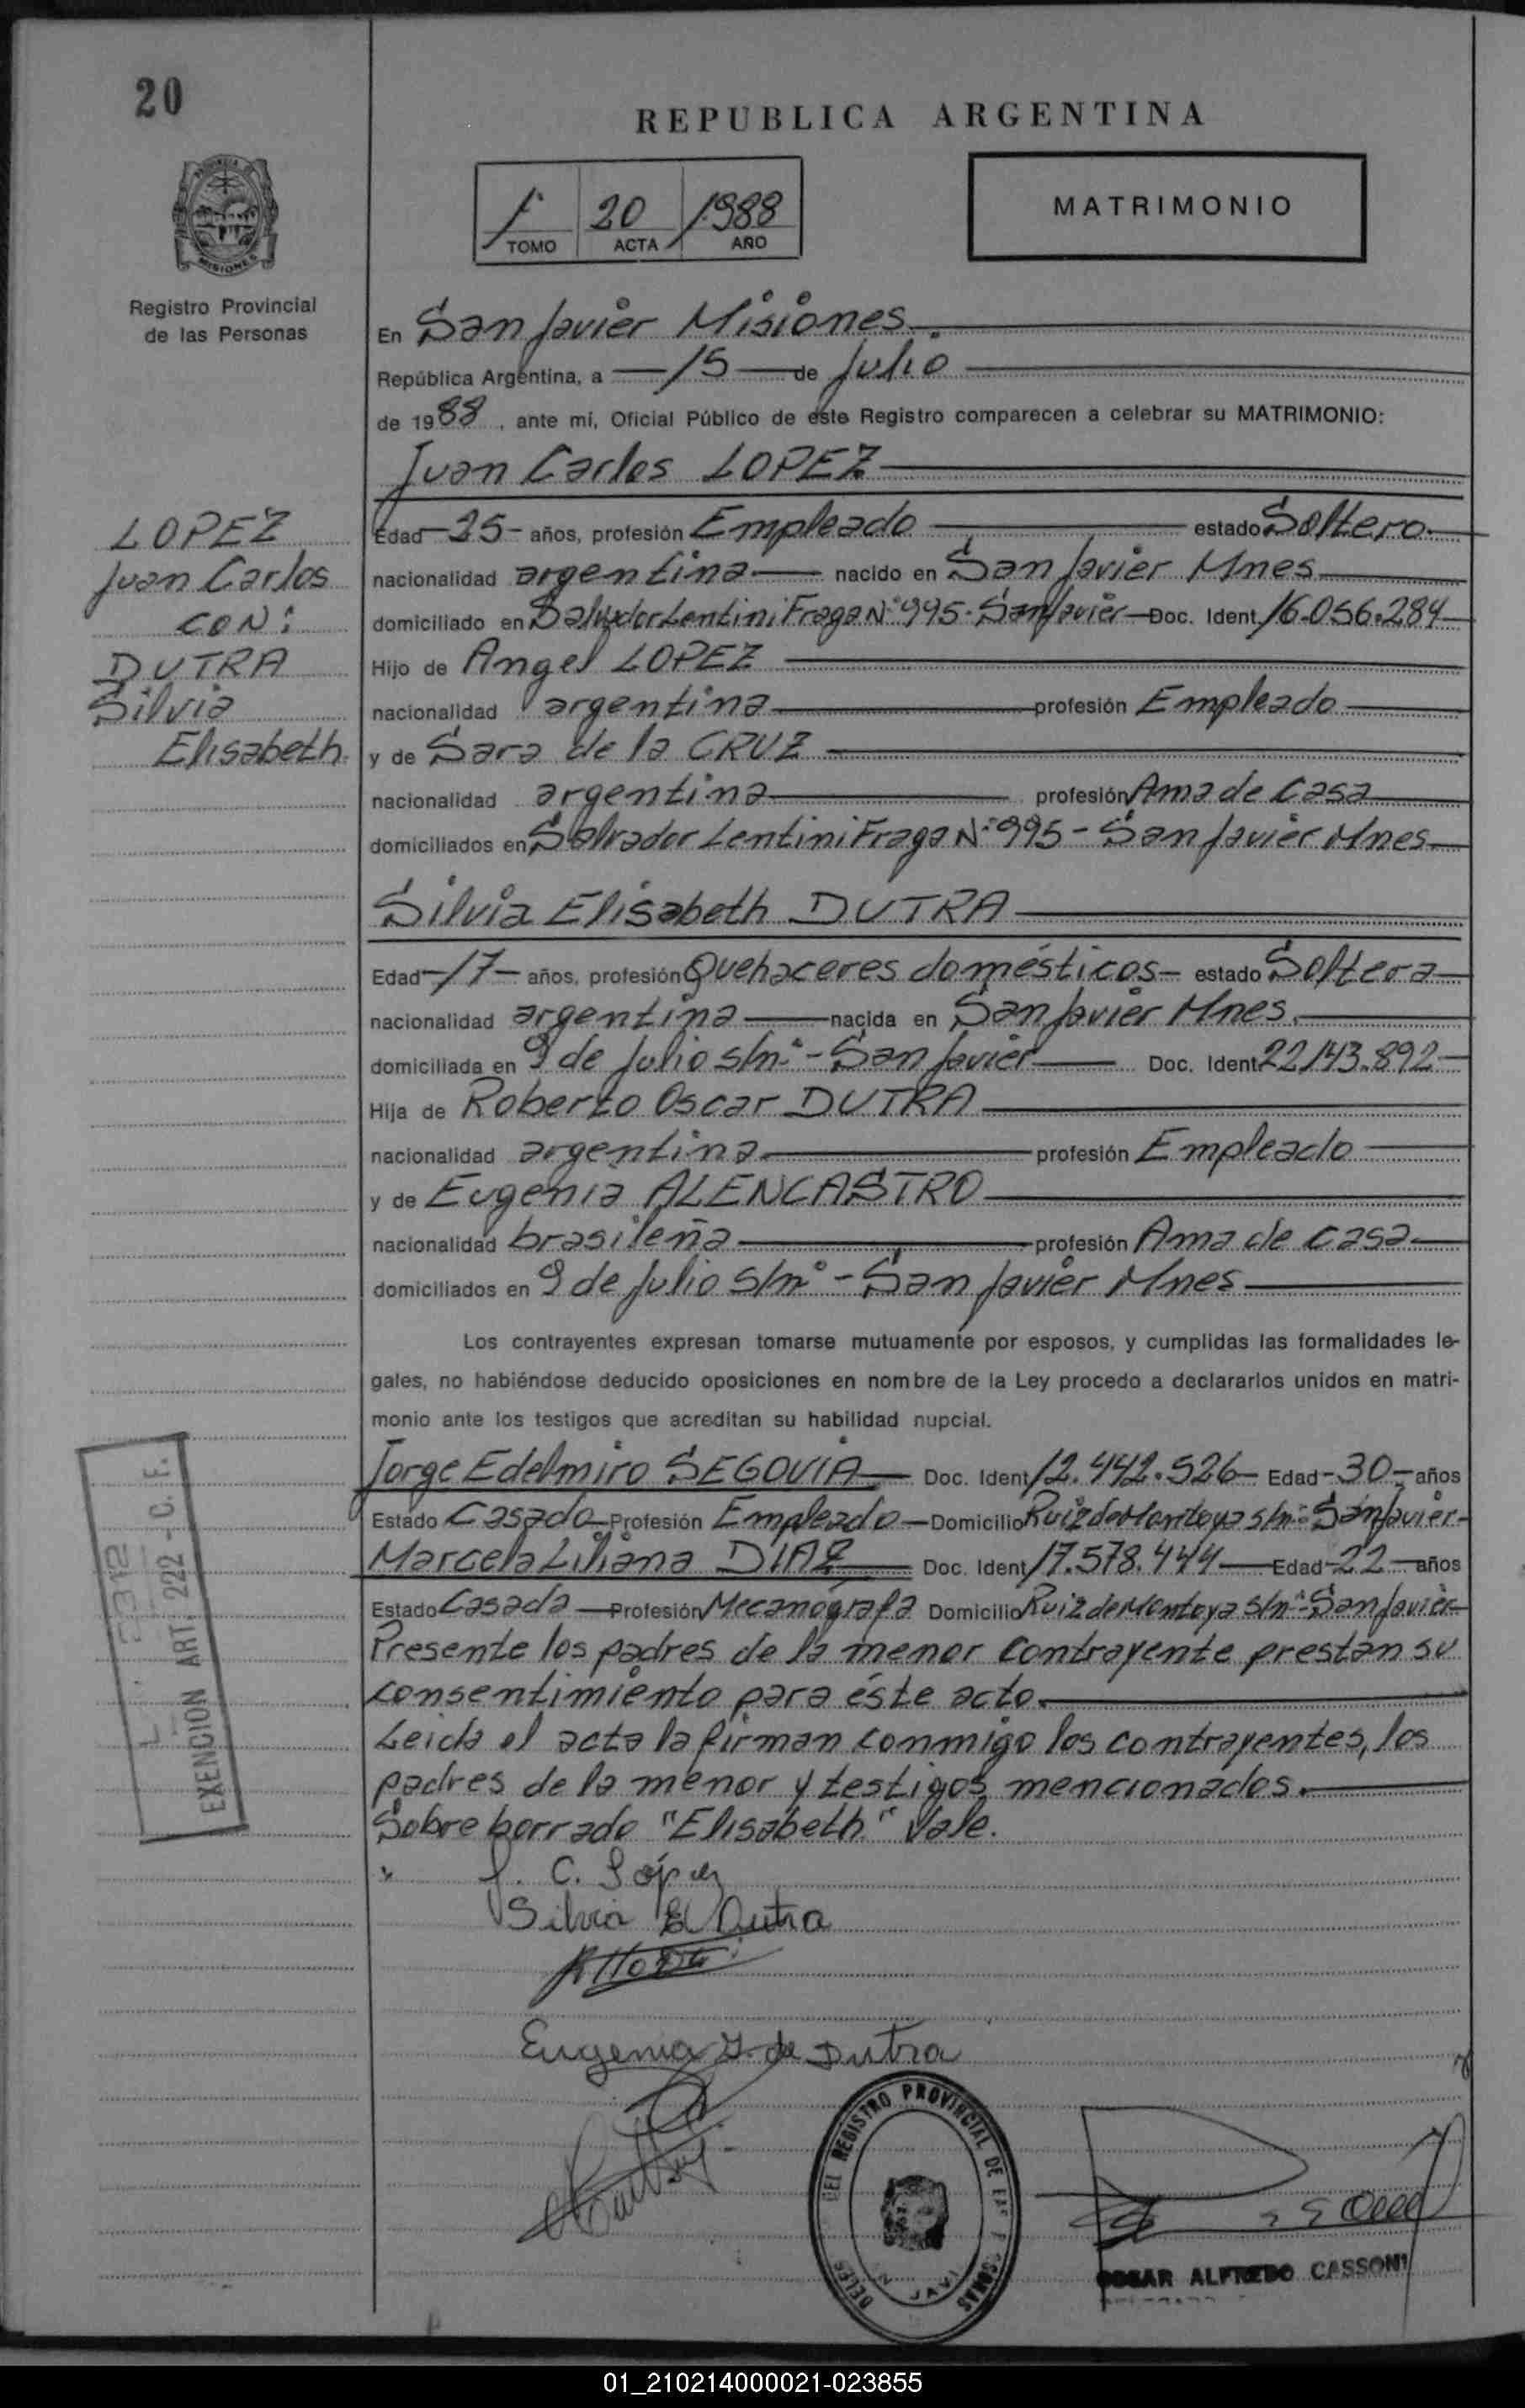 20
REPUBLICA ARGENTINA
1º 20 1988
TOMO ACTA AÑO
MATRIMONIO
PROVINCIA
MISIONES
Registro Provincial
de las Personas
En San Javier Misiones.
República Argentina, a 15 de Julio
de 1988, ante mí, Oficial Público de este Registro comparecen a celebrar su MATRIMONIO:
Juan Carlos LOPEZ
LOPEZ
Juan Carlos
CON:
DUTRA
Silvia
Elisabeth.
Edad -25- años, profesión Empleado estado Soltero
nacionalidad argentina nacido en San Javier Mnes
domiciliado en Salvador Lentini Fraga Nº 995 - San Javier Doc. Ident. 16.056.284
Hijo de Angel LOPEZ
nacionalidad argentina profesión Empleado
y de Sara de la CRUZ
nacionalidad argentina profesión Ama de Casa
domiciliados en Salvador Lentini Fraga Nº 995 - San Javier Mnes
Silvia Elisabeth DUTRA
Edad -17- años, profesión Quehaceres domésticos estado Soltera
nacionalidad argentina nacida en San Javier Mnes.
domiciliada en 9 de Julio s/nº - San Javier Doc. Ident. 22.143.892
Hija de Roberto Oscar DUTRA
nacionalidad argentina profesión Empleado
y de Eugenia ALENCASTRO
nacionalidad brasileña profesión Ama de casa
domiciliados en 9 de Julio s/nº - San Javier Mnes
Los contrayentes expresan tomarse mutuamente por esposos, y cumplidas las formalidades le-
gales, no habiéndose deducido oposiciones en nombre de la Ley procedo a declararlos unidos en matri-
monio ante los testigos que acreditan su habilidad nupcial.
Jorge Edelmiro SEGOVIA Doc. Ident. 12.442.526 Edad -30- años
Estado Casado Profesión Empleado Domicilio Ruiz de Montoya s/nº San Javier-
Marcela Liliana DIAZ Doc. Ident. 17.578.444 Edad -22- años
Estado Casada Profesión Mecanógrafa Domicilio Ruiz de Montoya s/nº San Javier
Presente los padres de la menor contrayente prestan su
consentimiento para éste acto.
Leida el acta la firman conmigo los contrayentes, los
padres de la menor y testigos mencionados.
Sobre borrado "Elisabeth" Vale.
EXENCION ART. 222 - C. F.
J. C. López
Silvia E. Dutra
Eugenia de Dutra
DEL REGISTRO PROVINCIAL DE
OSCAR ALFREDO CASSONI
01_210214000021-023855